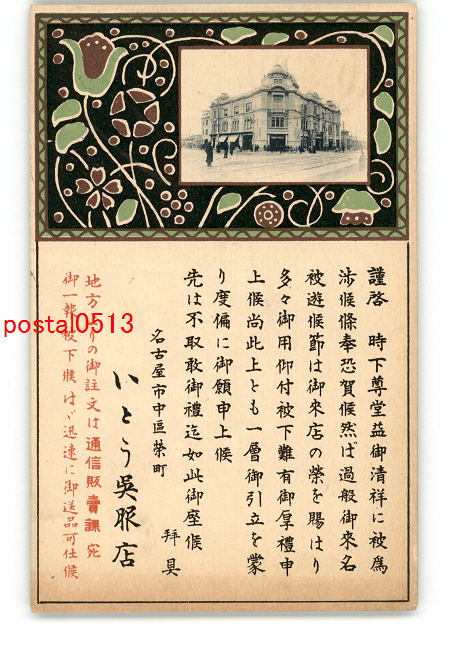 謹啓　時下尊堂益御清祥に被爲
渉候條奉恐賀候然ば過般御來名
被遊候節は御來店の榮を賜はり
多々御用御付被下難有御厚禮申
上候尚此上とも一層御引立を蒙
り度偏に御願申上候
先は不取敢御禮迄如此御座候
拜具
名古屋市中區榮町
いとう吳服店
地方よりの御註文は通信販賣課宛
御一報被下候はゞ迅速に御送品可仕候
postal0513